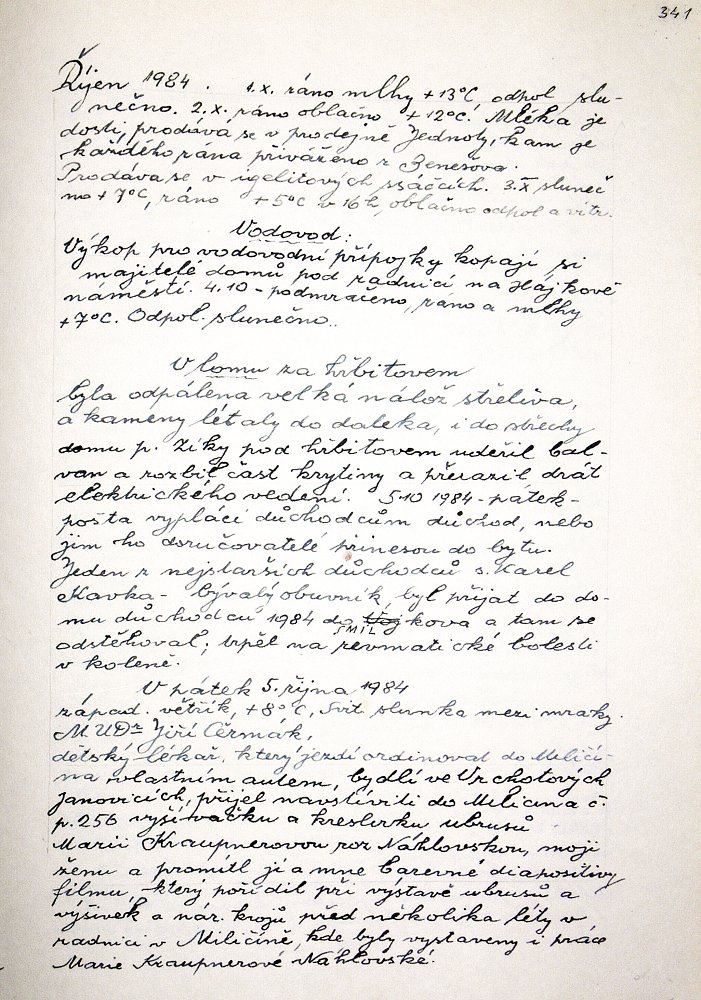 341
Říjen 1984. 1.X. ráno mlhy +13°C, odpol slu-
nečno. 2.X. ráno oblačno +12°C. Mléka je
dosti, prodáva se v prodejně Jednoty, kam je
každého rána přiváženo z Benešova.
Prodáva se v igelitových ssáčcích. 3.X sluneč
no +7°C, ráno +5°C v 16h, oblačno odpol a vítr.
Vodovod:
Výkop pro vodovodní přípojky kopají si
majitelé domů pod radnicí na Hájkově
náměstí. 4.10 - podmračeno, ráno a mlhy
+7°C. Odpol. slunečno..
V lomu za hřbitovem
byla odpálena velká nálož střeliva,
a kameny létaly do daleka, i do střechy
domu p. Ziky pod hřbitovem udeřil bal-
van a rozbil část krytiny a přerazil drát
elektrického vedení. 5 10 1984 - pátek -
pošta vyplácí důchodcům důchod, nebo
jim ho doručovatelé přinesou do bytu.
Jeden z nejstarších důchodců s. Karel
Kavka - bývalý obuvník, byl přijat do do-
mu důchodců 1984 do Vojkova a tam se
SMIL
odstěhoval; trpěl na revmatické bolesti
v koleně.
V pátek 5. října 1984
západ. větřík, +8°C, Svit slunka mezi mraky.
MUDr Jiří Čermák,
dětský lékař, který jezdí ordinovat do Miličí-
na vlastním autem, bydlí ve Vrchotových
Janovicích, přijel navštíviti do Miličína č.
p. 256 vyšívačku a kreslírku ubrusů
Marii Kraupnerovou roz Náhlovskou, moji
ženu a promítl jí a mne barevné diapositivy
filmu, který pořídil při výstavě ubrusů a
výšivek a nár. krojů před několika léty v
radnici v Miličíně, kde byly vystaveny i práce
Marie Kraupnerové Náhlovské.